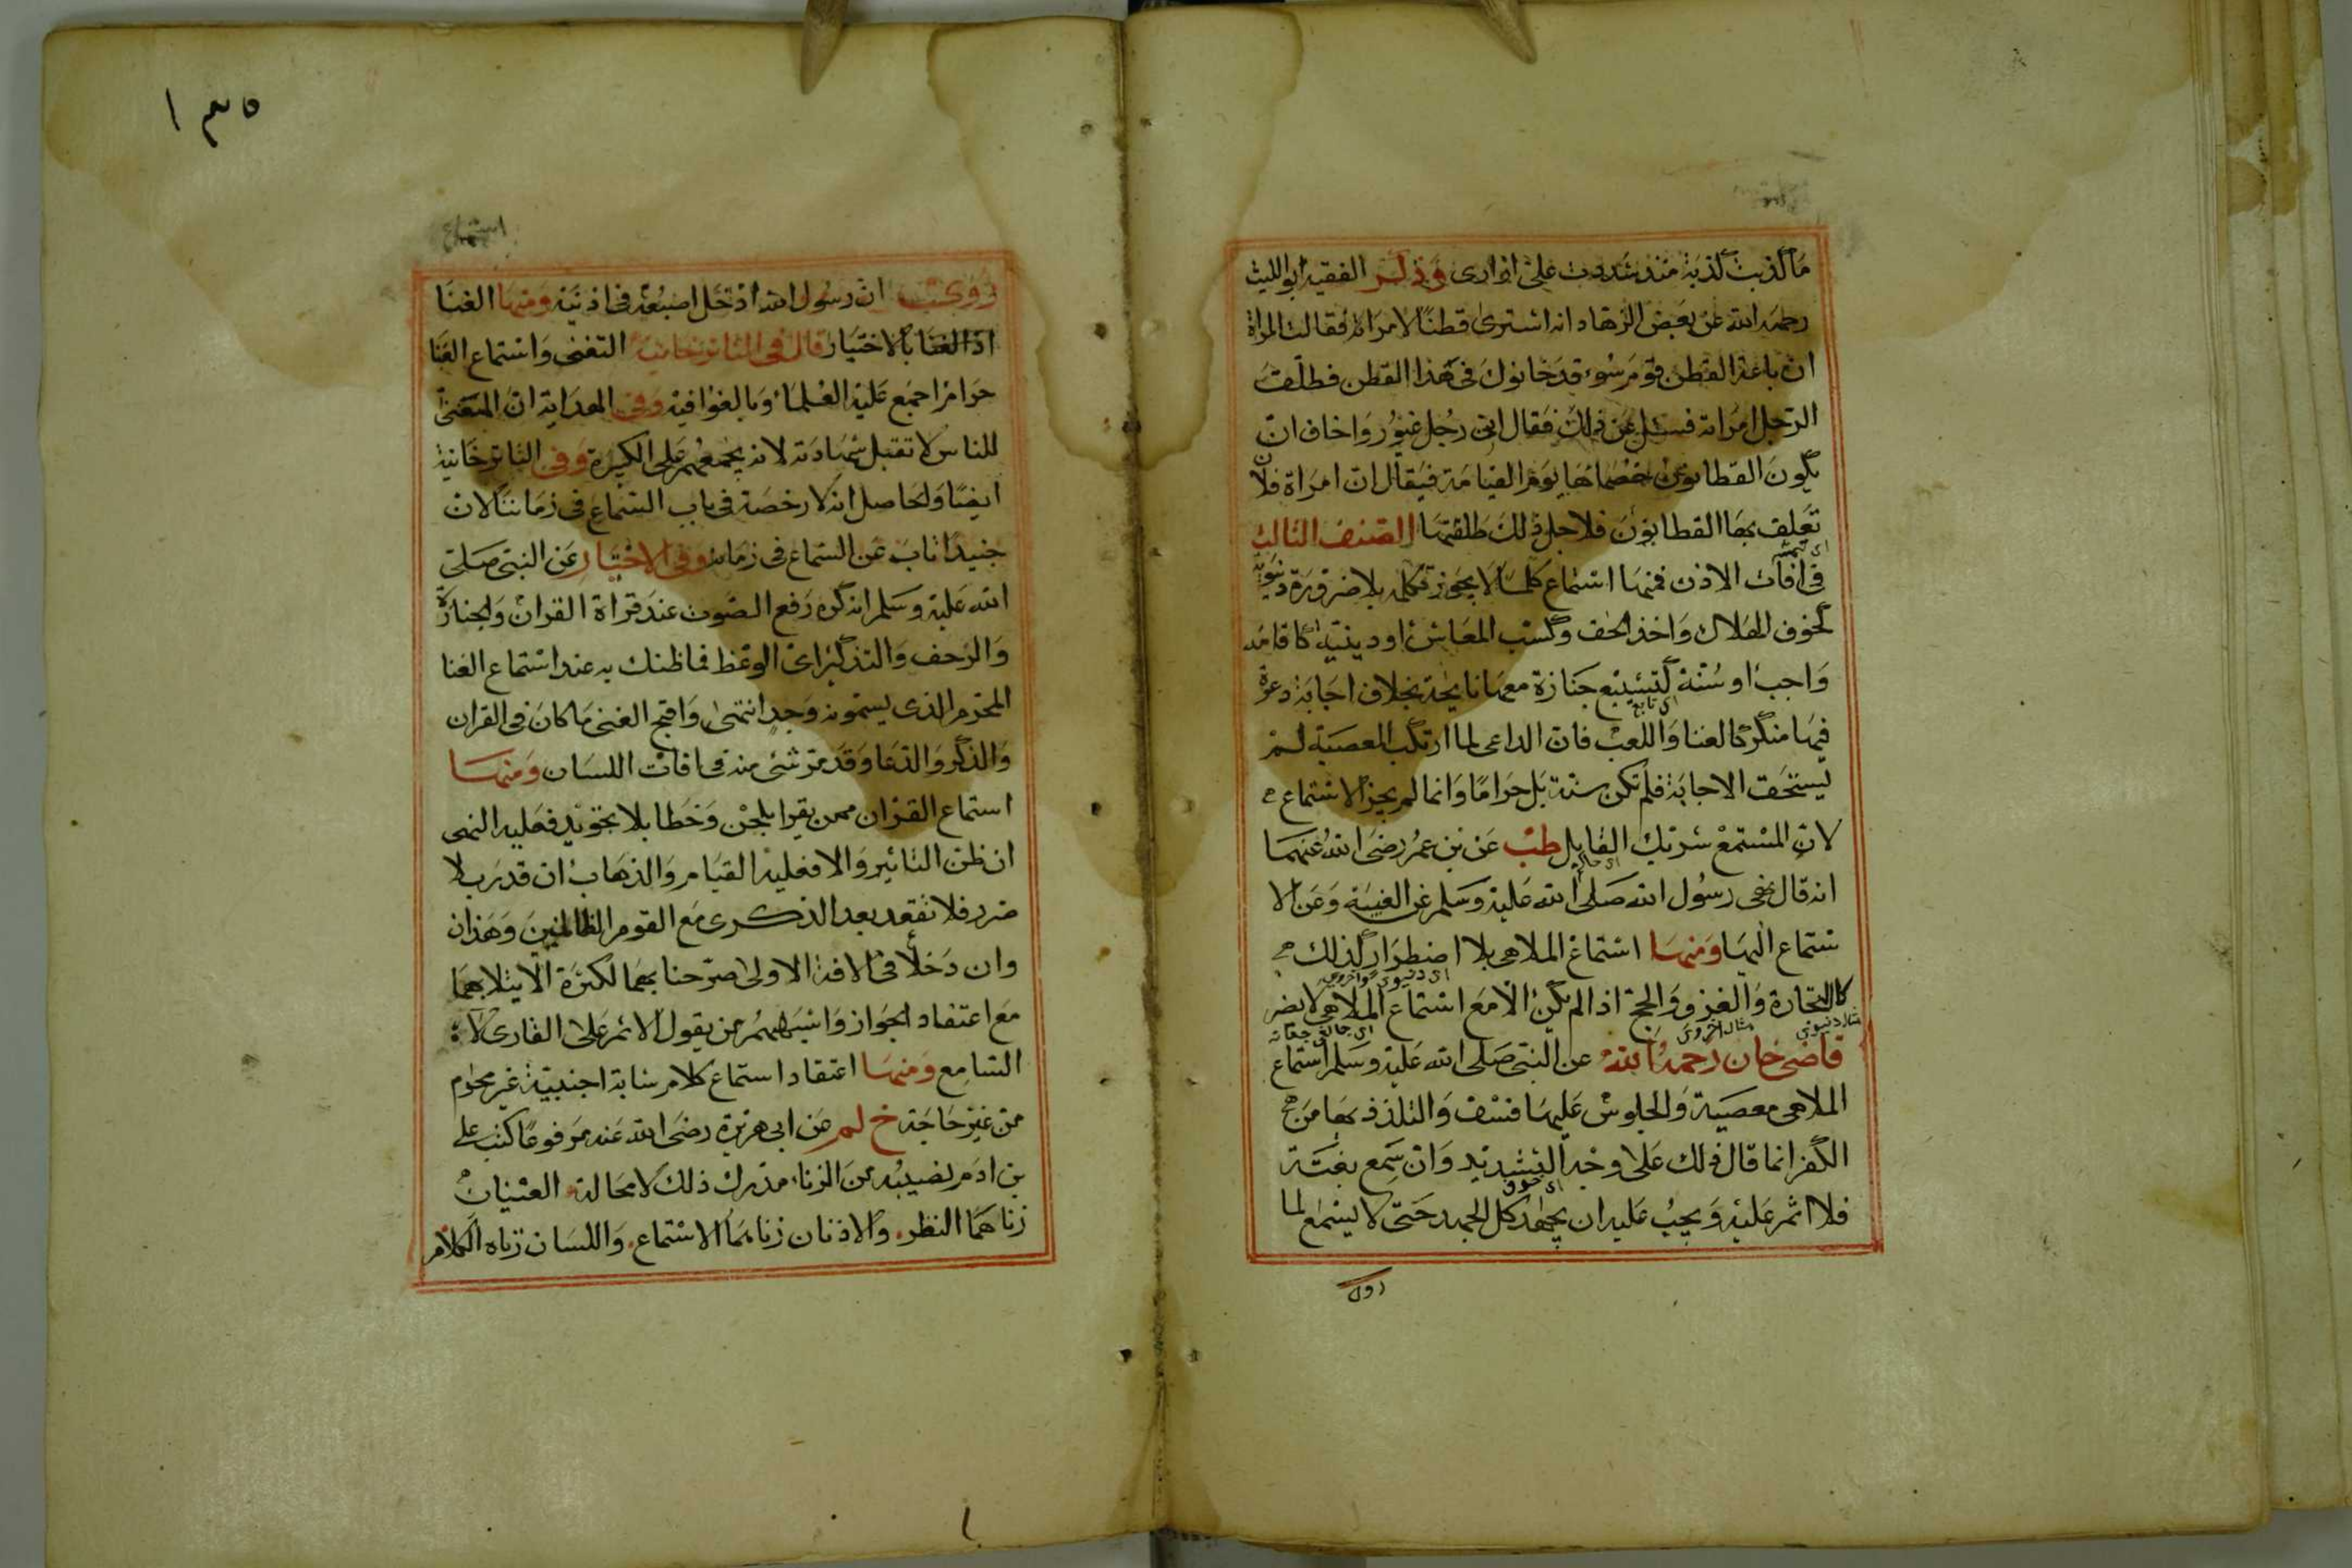 ما كذبت كذبة منذ شددت على ازارى وذكر الفقيه ابو الليث
رحمه الله عن بعض الزهاد انه اشترى قطنا لامراة فقالت المراة
ان باعة القطن قوم سوء قد خانوك فى هذا القطن فطلق
الرجل امراته فسئل عن ذلك فقال انى رجل غيور واخاف ان
يكون القطانون خصماءها يوم القيامة فيقال ان امراة فلان
تعلق بها القطانون فلاجل ذلك طلقتها الصنف الثالث
فى افات الاذن فمنها استماع كلما لا يجوز تكلمه بلا ضرورة دنيوية
كخوف الهلاك واخذ الحق وكسب المعاش او دينية كاقامة
واجب او سنة كتشييع جنازة معها نايحة بخلاف اجابة دعوة
اى تابع
فيها منكر كالغنا واللعب فان الداعى لما ارتكب المعصية لم
يستحق الاجابة فلم تكن سنة بل حراما وانما لم يجز الاستماع
لان المستمع شريك القايل طب عن بن عمر رضى الله عنهما
انه قال نهى رسول الله صلى الله عليه وسلم عن الغيبة وعن الا
ستماع اليها ومنها استماع الملاهى بلا اضطرار كذلك
اى دنيوى واخروى
كالتجارة والغزو والحج اذا لم يكن الا مع استماع الملاهى لا يضر
مثال دنيوى مثال اخروى
قاضى خان رحمه الله عن النبى صلى الله عليه وسلم استماع
الملاهى معصية والجلوس عليها فسق والتلذذ بها من
الكفر انما قال ذلك على وجه التشديد وان سمع بغتة
فلا اثم عليه ويجب عليه ان يجهد كل الجهد حتى لا يسمع لما
روى
١٣٥
استماع
روى ان رسول الله ادخل اصبعه فى اذنيه ومنها الغنا
اذ الغنا بالاختيار قال فى التاترخانية التغنى واستماع الغنا
حرام اجمع عليه العلماء وبالغوا فيه وفى الهداية ان المغنى
للناس لا تقبل شهادته لانه يجمعهم على الكبيرة وفى التاترخانية
ايضا والحاصل انه لا رخصة فى باب السماع فى زماننا لان
جنيدا تاب عن السماع فى زمانه وفى الاختيار عن النبى صلى
الله عليه وسلم انه كره رفع الصوت عند قراة القران والجنازة
والزحف والتذكير اى الوعظ فما ظنك به عند استماع الغنا
المحرم الذى يسمونه وجدا انتهى واقبح الغنى ما كان فى القران
والذكر والدعا وقد مر شئ منه فى افات اللسان ومنها
استماع القران ممن يقرا بلحن وخطا بلا تجويد فعليه النهى
ان ظن التاثير والا فعليه القيام والذهاب ان قدر بلا
ضرر فلا تقعد بعد الذكرى مع القوم الظالمين وهذان
وان دخلا فى الافة الاولى صرحنا بهما لكثرة الابتلا بهما
مع اعتقاد الجواز واشبههم من يقول الاثم على القارى لا
السامع ومنها اعتقاد استماع كلام شابة اجنبية غير محرم
من غير حاجة خ لم عن ابى هريرة رضى الله عنه مرفوعا كتب على
بن ادم نصيبه من الزنا مدرك ذلك لا محالة العينان
زناهما النظر والاذنان زناهما الاستماع واللسان زناه الكلام